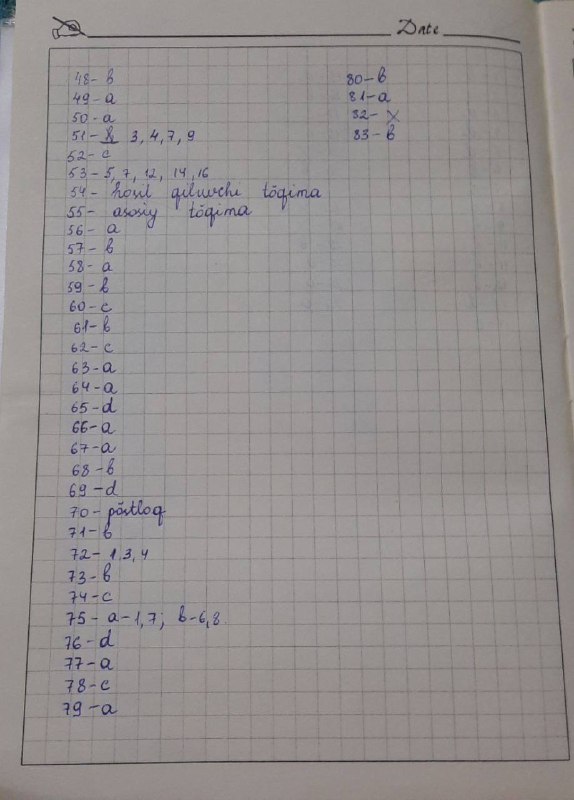 Date
48- b
49- a
50- a
51- 3, 4, 7, 9
52- c
53- 5, 7, 12, 14, 16
54- hosil qiluvchi tõqima
55- asosiy tõqima
56- a
57- b
58- a
59- b
60- c
61- b
62- c
63- a
64- a
65- d
66- a
67- a
68- b
69- d
70- põstloq
71- b
72- 1, 3, 4
73- b
74- c
75- a-1, 7; b-6, 8
76- d
77- a
78- c
79- a
80- b
81- a
82- x
83- b